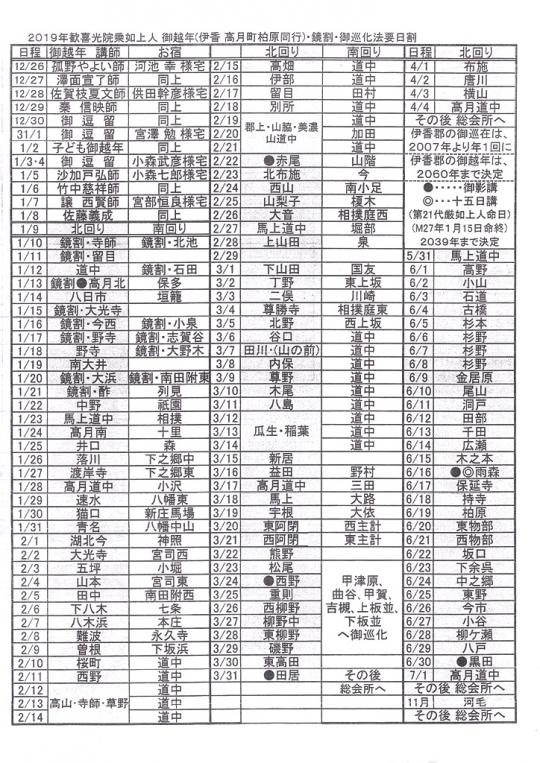 2019年歓喜光院乗如上人 御越年(伊香 高月町柏原同行)・鏡割・御巡化法要日割
日程 御越年 講師 お宿 北回り 南回り 日程 北回り
12/26 孤野やよい師 河池 幸 様宅 2/15 高畑 道中 4/1 布施
12/27 澤面宣了師 同上 2/16 伊部 道中 4/2 唐川
12/28 佐賀枝夏文師 供田幹彦様宅 2/17 留目 田村 4/3 横山
12/29 秦 信映師 同上 2/18 別所 道中 4/4 高月道中
12/30 御 逗 留 同上 2/19 郡上・山脇・美濃 道中 その後 総会所へ
31/1 御 逗 留 宮澤 勉 様宅 2/20 山道中 加田 伊香郡の御巡在は、
1/2 子ども御越年 同上 2/21 道中 2007年より年1回に
1/3・4 御 逗 留 小森武彦様宅 2/22 ●赤尾 山階 伊香郡の御越年は、
1/5 沙加戸弘師 小森七郎様宅 2/23 北布施 今 2060年まで決定
1/6 竹中慈祥師 同上 2/24 西山 南小足 ●・・・・・御影講
1/7 譲 西賢師 宮部恒良様宅 2/25 山梨子 榎木 ◎・・・十五日講
1/8 佐藤義成 同上 2/26 大音 相撲庭西 (第21代厳如上人命日)
1/9 北回り 南回り 2/27 馬上道中 堀部 (M27年1月15日命終)
1/10 鏡割・寺師 鏡割・北池 2/28 上山田 泉 2039年まで決定
1/11 鏡割・留目 2/29 5/31 馬上道中
1/12 道中 鏡割・石田 3/1 下山田 国友 6/1 高野
1/13 鏡割●高月北 保多 3/2 丁野 東上坂 6/2 小山
1/14 八日市 垣籠 3/3 二俣 川崎 6/3 石道
1/15 鏡割・大光寺 3/4 尊勝寺 相撲庭東 6/4 古橋
1/16 鏡割・今西 鏡割・小泉 3/5 北野 西上坂 6/5 杉本
1/17 鏡割・野寺 鏡割・志賀谷 3/6 谷口 道中 6/6 杉野
1/18 野寺 鏡割・大野木 3/7 田川・(山の前) 道中 6/7 杉野
1/19 南大井 3/8 内保 道中 6/8 杉野
1/20 鏡割・大浜 鏡割・南田附東 3/9 尊野 道中 6/9 金居原
1/21 鏡割・酢 列見 3/10 木尾 道中 6/10 尾山
1/22 中野 祇園 3/11 八島 道中 6/11 洞戸
1/23 馬上道中 相撲 3/12 道中 6/12 田部
1/24 高月南 十里 3/13 瓜生・稲葉 道中 6/13 千田
1/25 井口 森 3/14 道中 6/14 広瀬
1/26 落川 下之郷中 3/15 新居 6/15 木之本
1/27 渡岸寺 下之郷東 3/16 益田 野村 6/16 ●◎雨森
1/28 高月道中 小沢 3/17 高月道中 三田 6/17 保延寺
1/29 速水 八幡東 3/18 馬上 大路 6/18 持寺
1/30 猫口 新庄馬場 3/19 宇根 大依 6/19 柏原
1/31 青名 八幡中山 3/20 東阿閉 西主計 6/20 東物部
2/1 湖北今 神照 3/21 西阿閉 東主計 6/21 西物部
2/2 大光寺 宮司西 3/22 熊野 6/22 坂口
2/3 五坪 小堀 3/23 松尾 6/23 下余呉
2/4 山本 宮司東 3/24 ●西野 甲津原、 6/24 中之郷
2/5 田中 南田附西 3/25 重則 曲谷、甲賀、 6/25 東野
2/6 下八木 七条 3/26 西柳野 吉槻、上板並、 6/26 今市
2/7 八木浜 本庄 3/27 柳野中 下板並 6/27 小谷
2/8 難波 永久寺 3/28 東柳野 へ御巡化 6/28 柳ケ瀬
2/9 曽根 下坂浜 3/29 磯野 6/29 八戸
2/10 桜町 道中 3/30 東高田 6/30 ●黒田
2/11 西野 道中 3/31 ●田居 その後 7/1 高月道中
2/12 道中 総会所へ その後 総会所へ
2/13 高山・寺師・草野 道中 11月 河毛
2/14 道中 その後 総会所へ